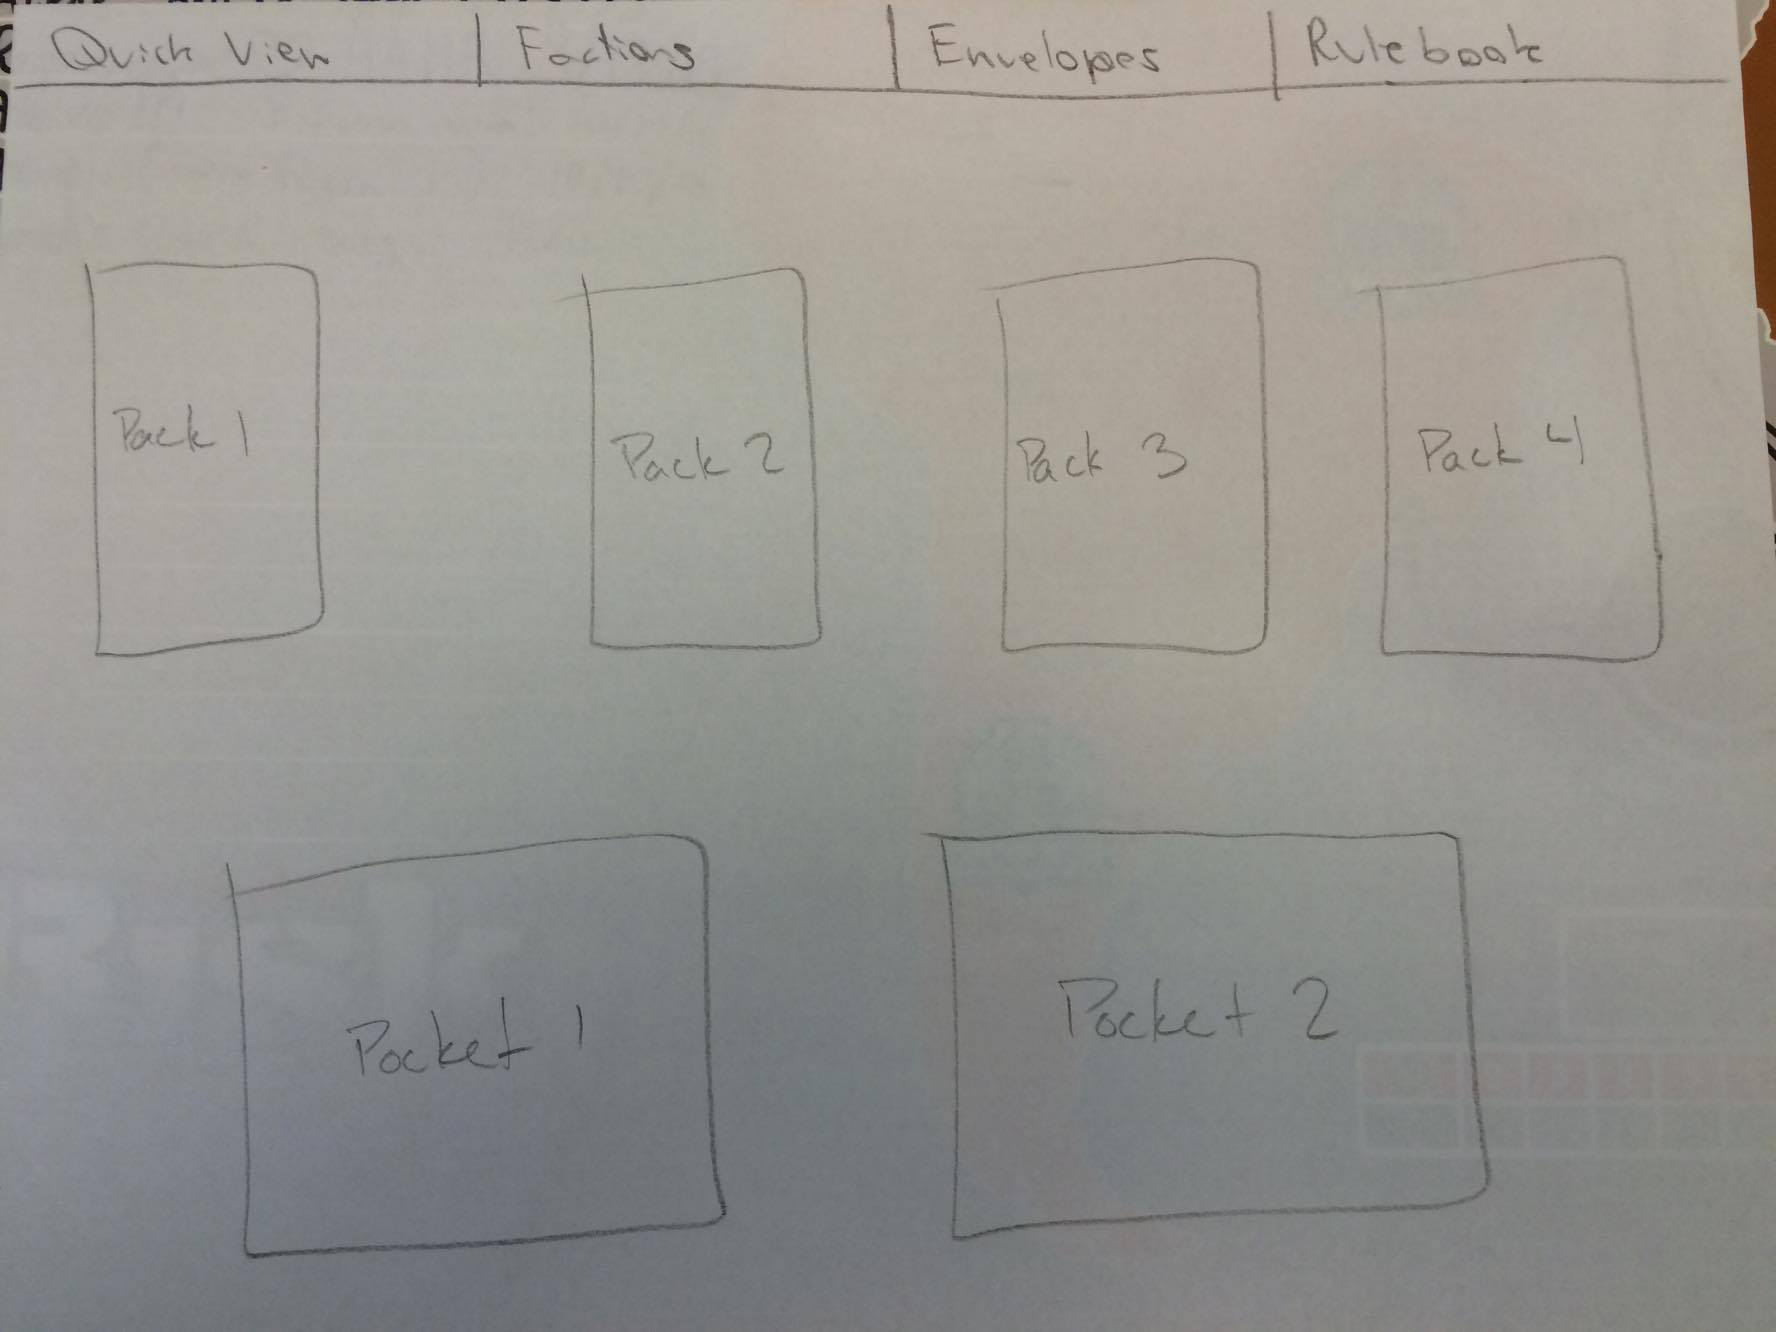 Quick View | Factions | Envelopes | Rulebook
Pack 1 Pack 2 Pack 3 Pack 4
Pocket 1 Pocket 2